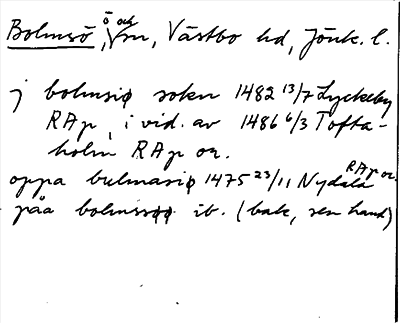 Bolmsö, ö och sn, Västbo hd, Jönk. l.
j bolmsiø sokn 1482 13/7 Lyckeby
RAp, i vid. av 1486 6/3 Tofta-
holm RAp or.
oppa bulmasiø 1475 23/11 Nydala RAp or.
påa bolmssøø ib. (bak, sen hand)